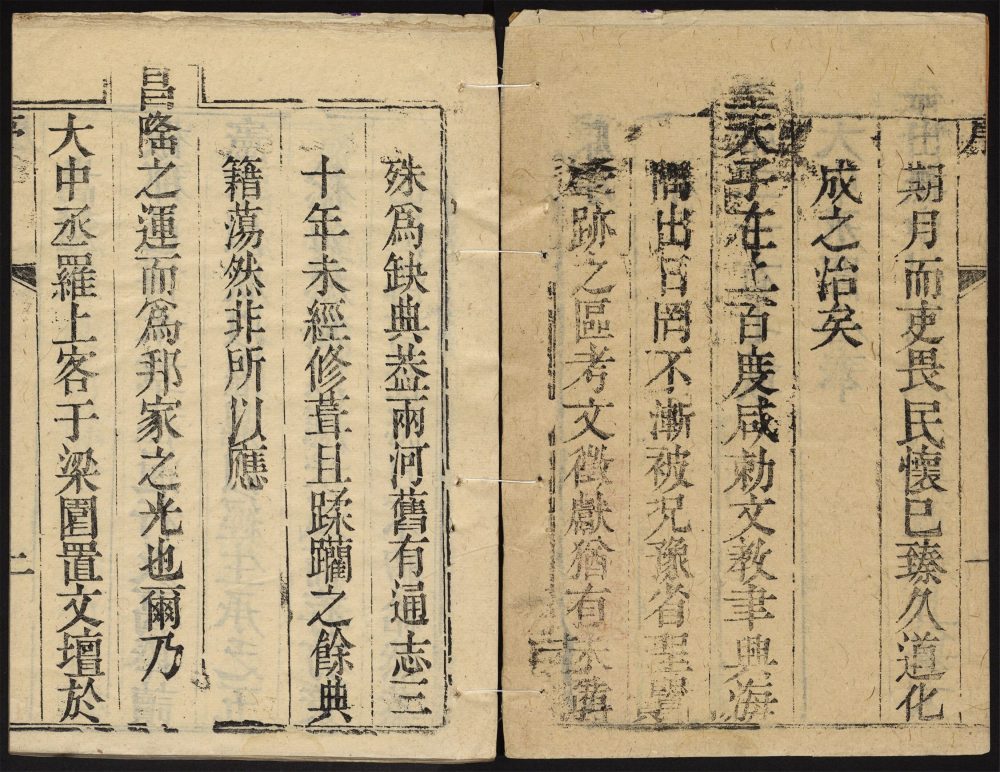 朞月而吏畏民懷已臻久道化
成之治矣
聖天子在上百度咸勅文教聿興海
隅出日罔不漸被况豫省聖賢
遺跡之區考文徵獻猶有未備
殊爲缺典葢兩河舊有通志三
十年未經修葺且蹂躪之餘典
籍蕩然非所以應
昌隆之運而爲邦家之光也爾乃
大中丞羅上客于梁園置文壇於
序
二